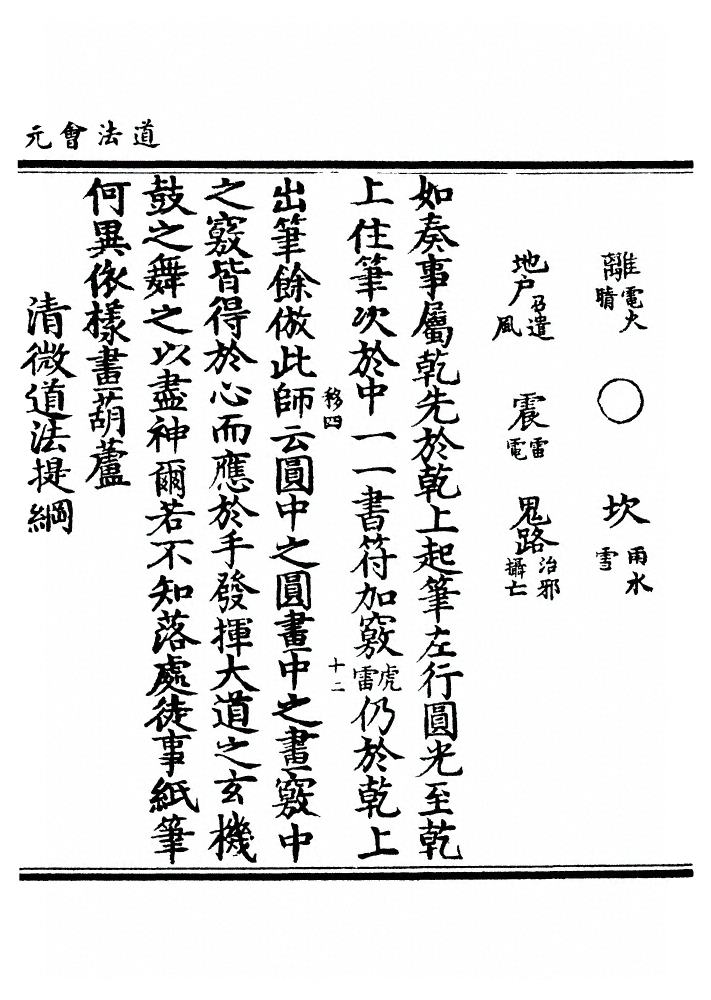 道法會元
離電火晴　○　坎雨水雪
地户召遣風　震雷電　鬼路治邪攝亡
如奏事屬乾先於乾上起筆左行圓光至乾
上住筆次於中一一書符加竅虎雷仍於乾上
移四　十二
出筆餘倣此師云圓中之圓畫中之畫竅中
之竅皆得於心而應於手發揮大道之玄機
鼓之舞之以盡神爾若不知落處徒事紙筆
何異依樣畫葫蘆
清微道法提綱